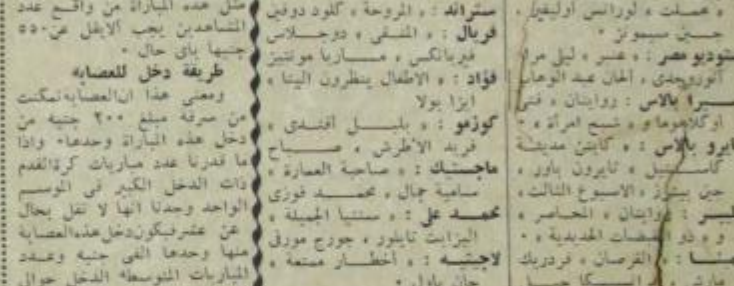 « هملت » لورانس أوليفييه ،
جين سيمونز ·
ستوديو مصر : « عنبر » ليلى مراد
أنور وجدى ، ألحان عبد الوهاب
بالاس : روايتان ، فتى
اوكلاهوما و « شبح امرأة » ·
كايرو بالاس : « كابتن مديتة
تايرون باور ،
جين بيترز « الاسبوع الثالث »
: روايتان « المحاصر »
و « ذو القبضات الحديدية » ·
: القرصان ، فردريك
ستراند : « المروحة » كلود دوفين
فريال : « المنفى » دوجلاس
فيربانكس ، ماريا مونتيز
فؤاد : « الاطفال ينظرون الينا »
ايزا بولا
كوزمو : « بلبل أفندى »
فريد الاطرش ، صباح
ماجستك : « صاحبة العمارة »
سامية جمال ، محمد فوزى
محمد على : « سنتيا الجميلة »
اليزابت تايلور ، جورج مورفى
لاجتيه : « أخطار ممتعة »
جان بادل ·
مثل هذه المباراة من واقع عدد
المشاهدين يجب ألا يقل عن ٥٥٠
جنيها بأى حال ·
طريقة دخل للعصابه
ومعنى هذا ان العصابه تمكنت
من سرقة مبلغ ٢٠٠ جنيه من
دخل هذه المباراة وحدها · واذا
ما قدرنا عدد مباريات كرة القدم
ذات الدخل الكبير فى الموسم
الواحد وجدنا انها لا تقل بحال
عن عشر فيكون دخل هذه العصابة
منها وحدها الفى جنيه وعدد
المباريات المتوسطه الدخل حوالى